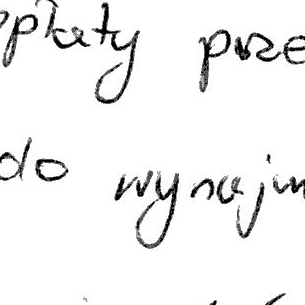 opłaty prze
do wynajm